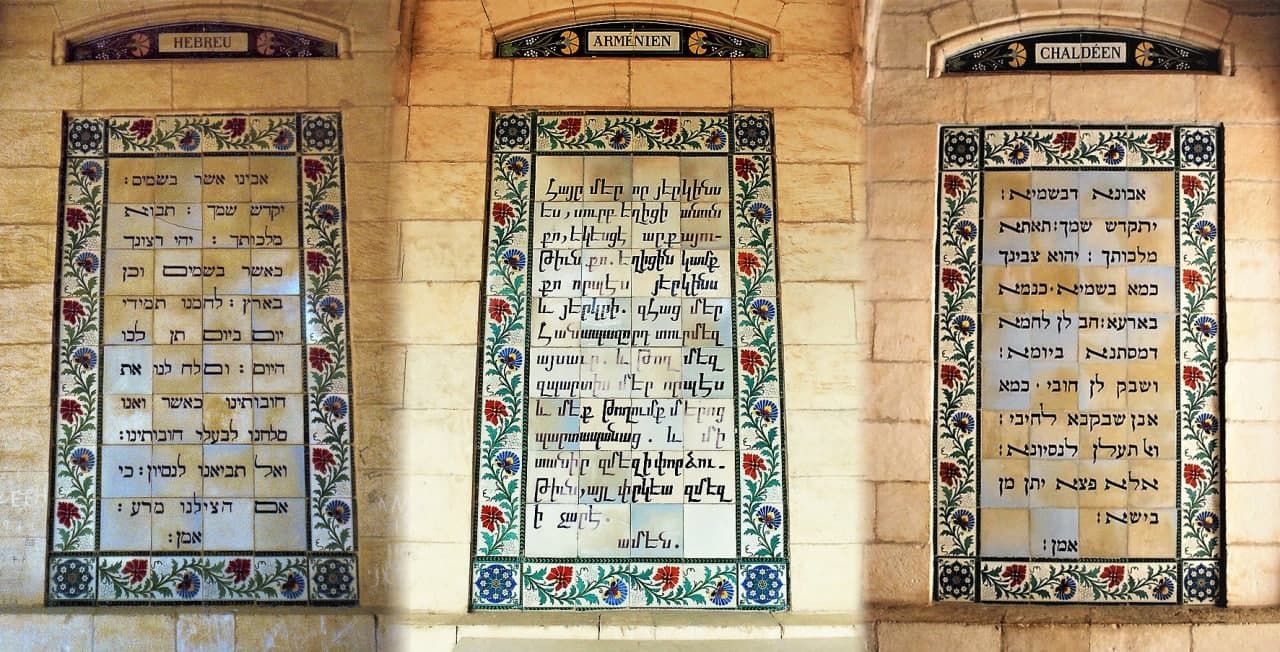 HEBREU
אבינו אשר בשמים:
יקדש שמך : תבוא
מלכותך : יהי רצונך
כאשר בשמים וכן
בארץ : לחמנו תמידי
יום ביום תן לנו
היום : וסלח לנו את
חובותינו כאשר ואנו
סלחנו לבעלי חובותינו:
ואל תביאנו לנסיון: כי
אם הצילנו מרע:
אמן:
ARMÉNIEN
Հայր մեր որ յերկինս
ես, սուրբ եղիցի անուն
քո, եկեսցէ արքայու-
թիւն քո. եղիցին կամք
քո որպէս յերկինս
և յերկրի. զՀաց մեր
Հանապազորդ տուր մեզ
այսաւր. և թող մեզ
զպարտիս մեր որպէս
և մեք թողումք մերոց
պարտապանաց. և մի
տանիր զմեզ ի փորձու-
թիւն, այլ փրկեա զմեզ
ի չարէ.
ամէն.
CHALDÉEN
אבונא דבשמיא:
יתקדש שמך: תאתא
מלכותך : יהוא צבינך
כמא בשמיא. כנמא
בארעא: הב לן לחמא
דמסתנא ביומא:
ושבק לן חובי. כמא
אנן שבקנא לחיבי:
ולא תעלן לנסיונא:
אלא פצא יתן מן
בישא:
אמן: